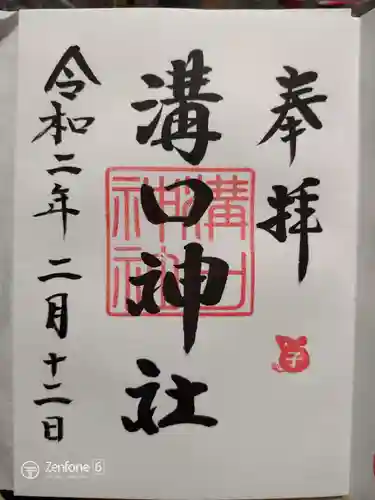 奉拝
子
溝口神社
溝口神社
令和二年二月十二日
Zenfone 6